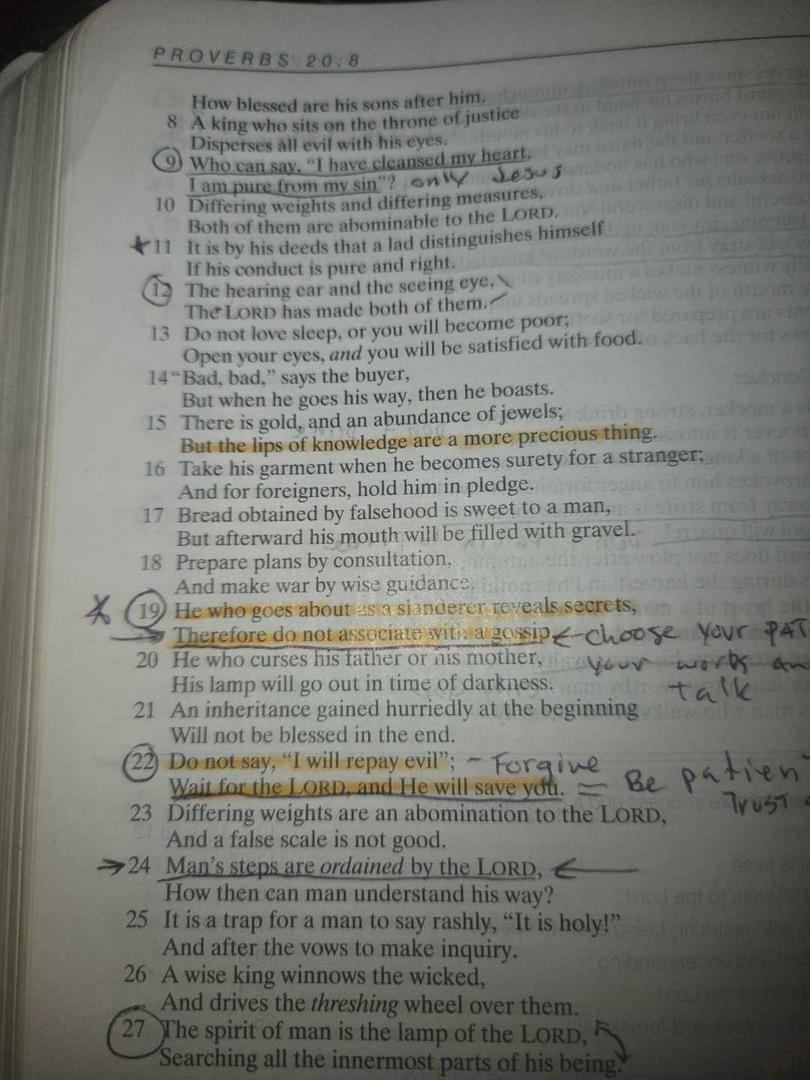 PROVERBS 20:8
How blessed are his sons after him.
8 A king who sits on the throne of justice
Disperses all evil with his eyes.
9 Who can say, "I have cleansed my heart,
I am pure from my sin"? only Jesus
10 Differing weights and differing measures,
Both of them are abominable to the LORD.
11 It is by his deeds that a lad distinguishes himself
If his conduct is pure and right.
12 The hearing ear and the seeing eye,
The LORD has made both of them.
13 Do not love sleep, or you will become poor;
Open your eyes, and you will be satisfied with food.
14 "Bad, bad," says the buyer,
But when he goes his way, then he boasts.
15 There is gold, and an abundance of jewels;
But the lips of knowledge are a more precious thing.
16 Take his garment when he becomes surety for a stranger;
And for foreigners, hold him in pledge.
17 Bread obtained by falsehood is sweet to a man,
But afterward his mouth will be filled with gravel.
18 Prepare plans by consultation,
And make war by wise guidance.
19 He who goes about as a slanderer reveals secrets,
Therefore do not associate with a gossip choose your PAT
20 He who curses his father or his mother, your works an
His lamp will go out in time of darkness. talk
21 An inheritance gained hurriedly at the beginning
Will not be blessed in the end.
22 Do not say, "I will repay evil"; - Forgive
Wait for the LORD, and He will save you. = Be patien
Trust
23 Differing weights are an abomination to the LORD,
And a false scale is not good.
24 Man's steps are ordained by the LORD,
How then can man understand his way?
25 It is a trap for a man to say rashly, "It is holy!"
And after the vows to make inquiry.
26 A wise king winnows the wicked,
And drives the threshing wheel over them.
27 The spirit of man is the lamp of the LORD,
Searching all the innermost parts of his being.